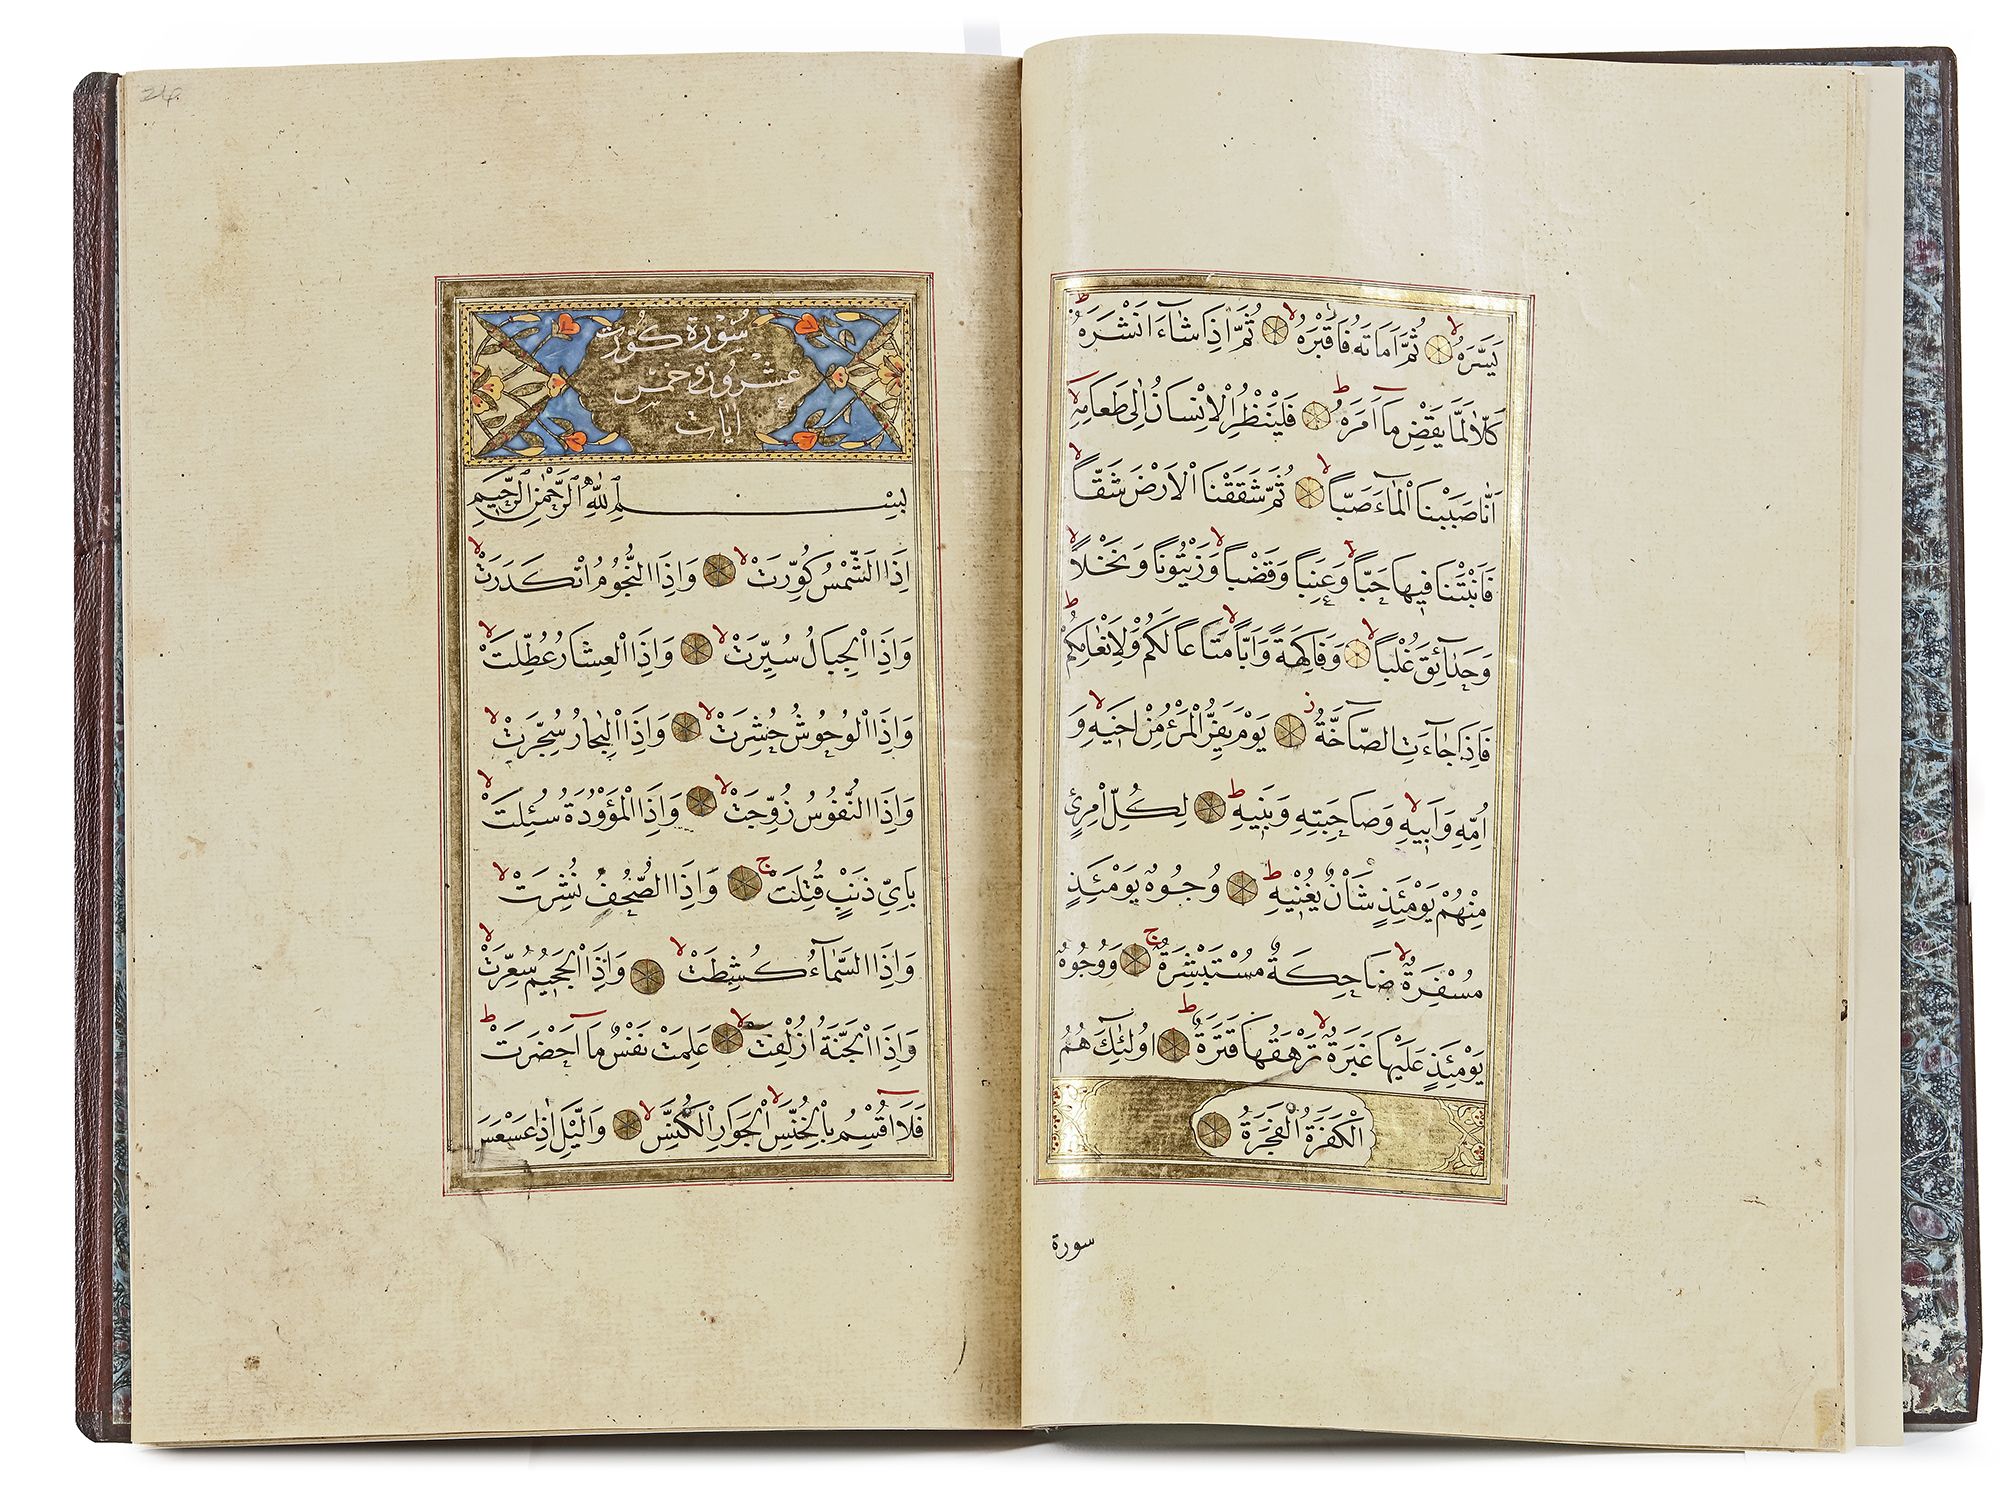 يَسَّرَهُ لا ثُمَّ اَمَاتَهُ فَاَقْبَرَهُ لا ثُمَّ اِذَا شَٓاءَ اَنْشَرَهُ ط
كَلَّا لَمَّا يَقْضِ مَٓا اَمَرَهُ ط فَلْيَنْظُرِ الْاِنْسَانُ اِلٰى طَعَامِهِ لا
اَنَّا صَبَبْنَا الْمَٓاءَ صَبًّا لا ثُمَّ شَقَقْنَا الْاَرْضَ شَقًّا لا
فَاَنْبَتْنَا فِيهَا حَبًّا لا وَعِنَبًا وَقَضْبًا لا وَزَيْتُونًا وَنَخْلًا لا
وَحَدَٓائِقَ غُلْبًا لا وَفَاكِهَةً وَاَبًّا لا مَتَاعًا لَكُمْ وَلِاَنْعَامِكُمْ ط
فَاِذَا جَٓاءَتِ الصَّٓاخَّةُ ز يَوْمَ يَفِرُّ الْمَرْءُ مِنْ اَخِيهِ لا وَ
اُمِّهِ وَاَبِيهِ لا وَصَاحِبَتِهِ وَبَنِيهِ ط لِكُلِّ امْرِئٍ
مِنْهُمْ يَوْمَئِذٍ شَاْنٌ يُغْنِيهِ ط وُجُوهٌ يَوْمَئِذٍ
مُسْفِرَةٌ لا ضَاحِكَةٌ مُسْتَبْشِرَةٌ ج وَوُجُوهٌ
يَوْمَئِذٍ عَلَيْهَا غَبَرَةٌ لا تَرْهَقُهَا قَتَرَةٌ ط اُولٰٓئِكَ هُمُ
الْكَفَرَةُ الْفَجَرَةُ
سورة
24
سُوْرَةُ كُوِّرَتْ
عِشْرُونَ وَخَمْسُ
اٰيَات
بِسْمِ اللّٰهِ الرَّحْمٰنِ الرَّحِيمِ
اِذَا الشَّمْسُ كُوِّرَتْ لا وَاِذَا النُّجُومُ انْكَدَرَتْ لا
وَاِذَا الْجِبَالُ سُيِّرَتْ لا وَاِذَا الْعِشَارُ عُطِّلَتْ لا
وَاِذَا الْوُحُوشُ حُشِرَتْ لا وَاِذَا الْبِحَارُ سُجِّرَتْ لا
وَاِذَا النُّفُوسُ زُوِّجَتْ لا وَاِذَا الْمَوْؤُدَةُ سُئِلَتْ لا
بِاَيِّ ذَنْبٍ قُتِلَتْ ج وَاِذَا الصُّحُفُ نُشِرَتْ لا
وَاِذَا السَّمَٓاءُ كُشِطَتْ لا وَاِذَا الْجَحِيمُ سُعِّرَتْ لا
وَاِذَا الْجَنَّةُ اُزْلِفَتْ لا عَلِمَتْ نَفْسٌ مَٓا اَحْضَرَتْ ط
فَلَٓا اُقْسِمُ بِالْخُنَّسِ لا الْجَوَارِ الْكُنَّسِ لا وَالَّيْلِ اِذَا عَسْعَسَ